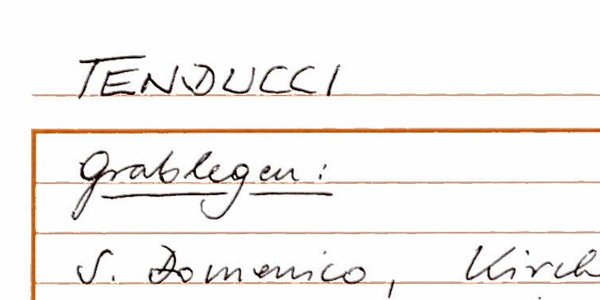 TENDUCCI
Grablegen:
S. Domenico, Kirch